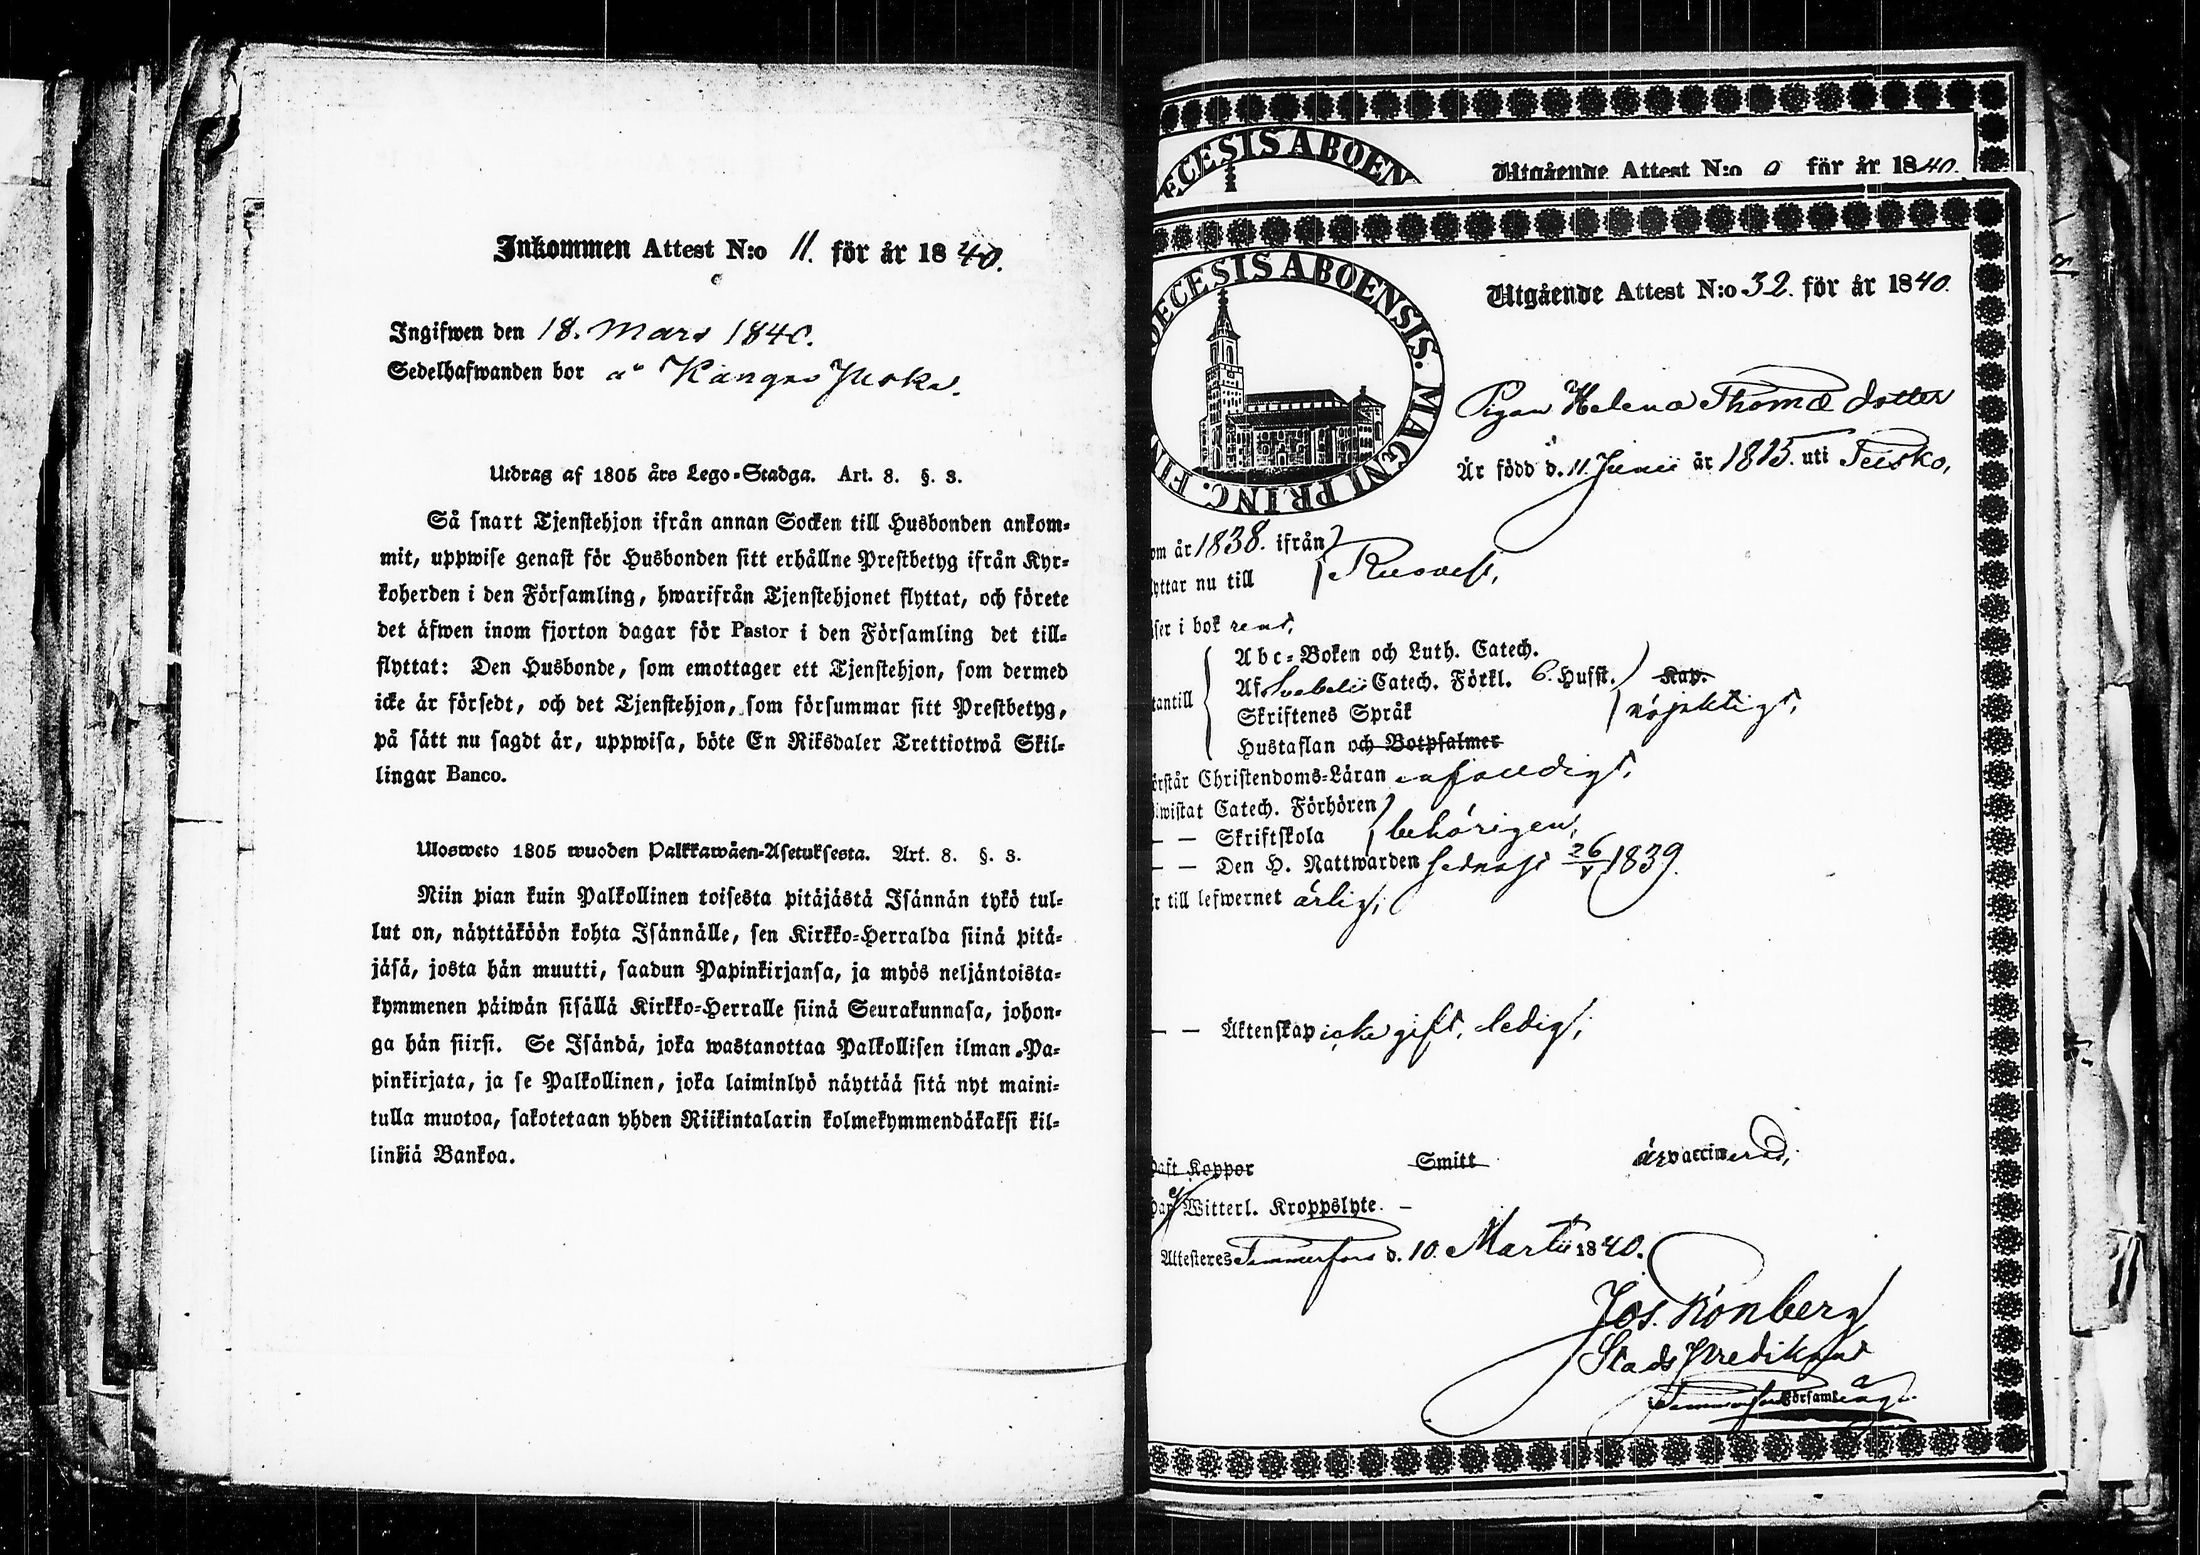 Inkommen Attest N:o 11. för år 1840.
Ingifwen den 18. Mars 1840.
Sedelhafwanden bor å Kangas Juska.
Utdrag af 1805 års Lego-Stadga. Art. 8. §. 3.
Så snart Tjenstehjon ifrån annan Socken till Husbonden ankom-
mit, uppwise genast för Husbonden sitt erhållne Prestbetyg ifrån Kyr-
koherden i den Församling, hwarifrån Tjenstehjonet flyttat, och förete
det äfwen inom fjorton dagar för Pastor i den Församling det till-
flyttat: Den Husbonde, som emottager ett Tjenstehjon, som dermed
icke är försedt, och det Tjenstehjon, som försummar sitt Prestbetyg,
på sätt nu sagdt är, uppwisa, böte En Riksdaler Trettiotwå Skil-
lingar Banco.
Ulosweto 1805 wuoden Palkkawäen-Asetuksesta. Art. 8. §. 3.
Niin pian kuin Palkollinen toisesta pitäjästä Isännän tykö tul-
lut on, näyttäköön kohta Isännälle, sen Kirkko-Herralda siinä pitä-
jäsä, josta hän muutti, saadun Papinkirjansa, ja myös neljäntoista-
kymmenen päiwän sisällä Kirkko-Herralle siinä Seurakunnasa, johon-
ga hän siirsi. Se Isändä, joka wastanottaa Palkollisen ilman Pa-
pinkirjata, ja se Palkollinen, joka laiminlyö näyttää sitä nyt maini-
tulla muotoa, sakotetaan yhden Riikintalarin kolmekymmendäkaksi kil-
linkiä Bankoa.
ECESIS ABOEN
Utgående Attest N:o för år 1840.
OECESIS ABOENSIS. MAGNI PRINC. FIN
Utgående Attest N:o 32. för år 1840.
Pigan Helena Thomæ dotter
Är född d. 11 Junii år 1815. uti Teisko,
om år 1838. ifrån
yttar nu till Ruovesi,
äser i bok rent,
Abc-Boken och Luth. Catech.
Af Svebelii Catech. Förkl. 6. Hufst. Kap.
tantill nöjaktigt,
Skriftenes Språk
Hustaflan och Botpsalmer
örstår Christendoms-Läran enfaldigt,
wistat Catech. Förhören
— — Skriftskola behörigen,
— — Den H. Nattwarden sednast 26/1 1839.
r till lefwernet ärlig,
— — Äktenskap icke gift, ledig,
haft Koppor Smitt är vaccinerad,
har Witterl. Kroppslyte. –
Attesteres Tammerfors d. 10. Martii 1840.
Jos. Rönberg
Stads Predikant
Tammerfors Församling.